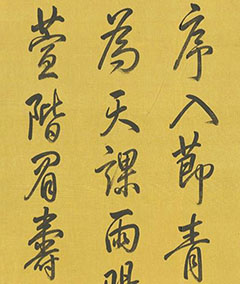 序入節青
為天課雨
萱階眉壽